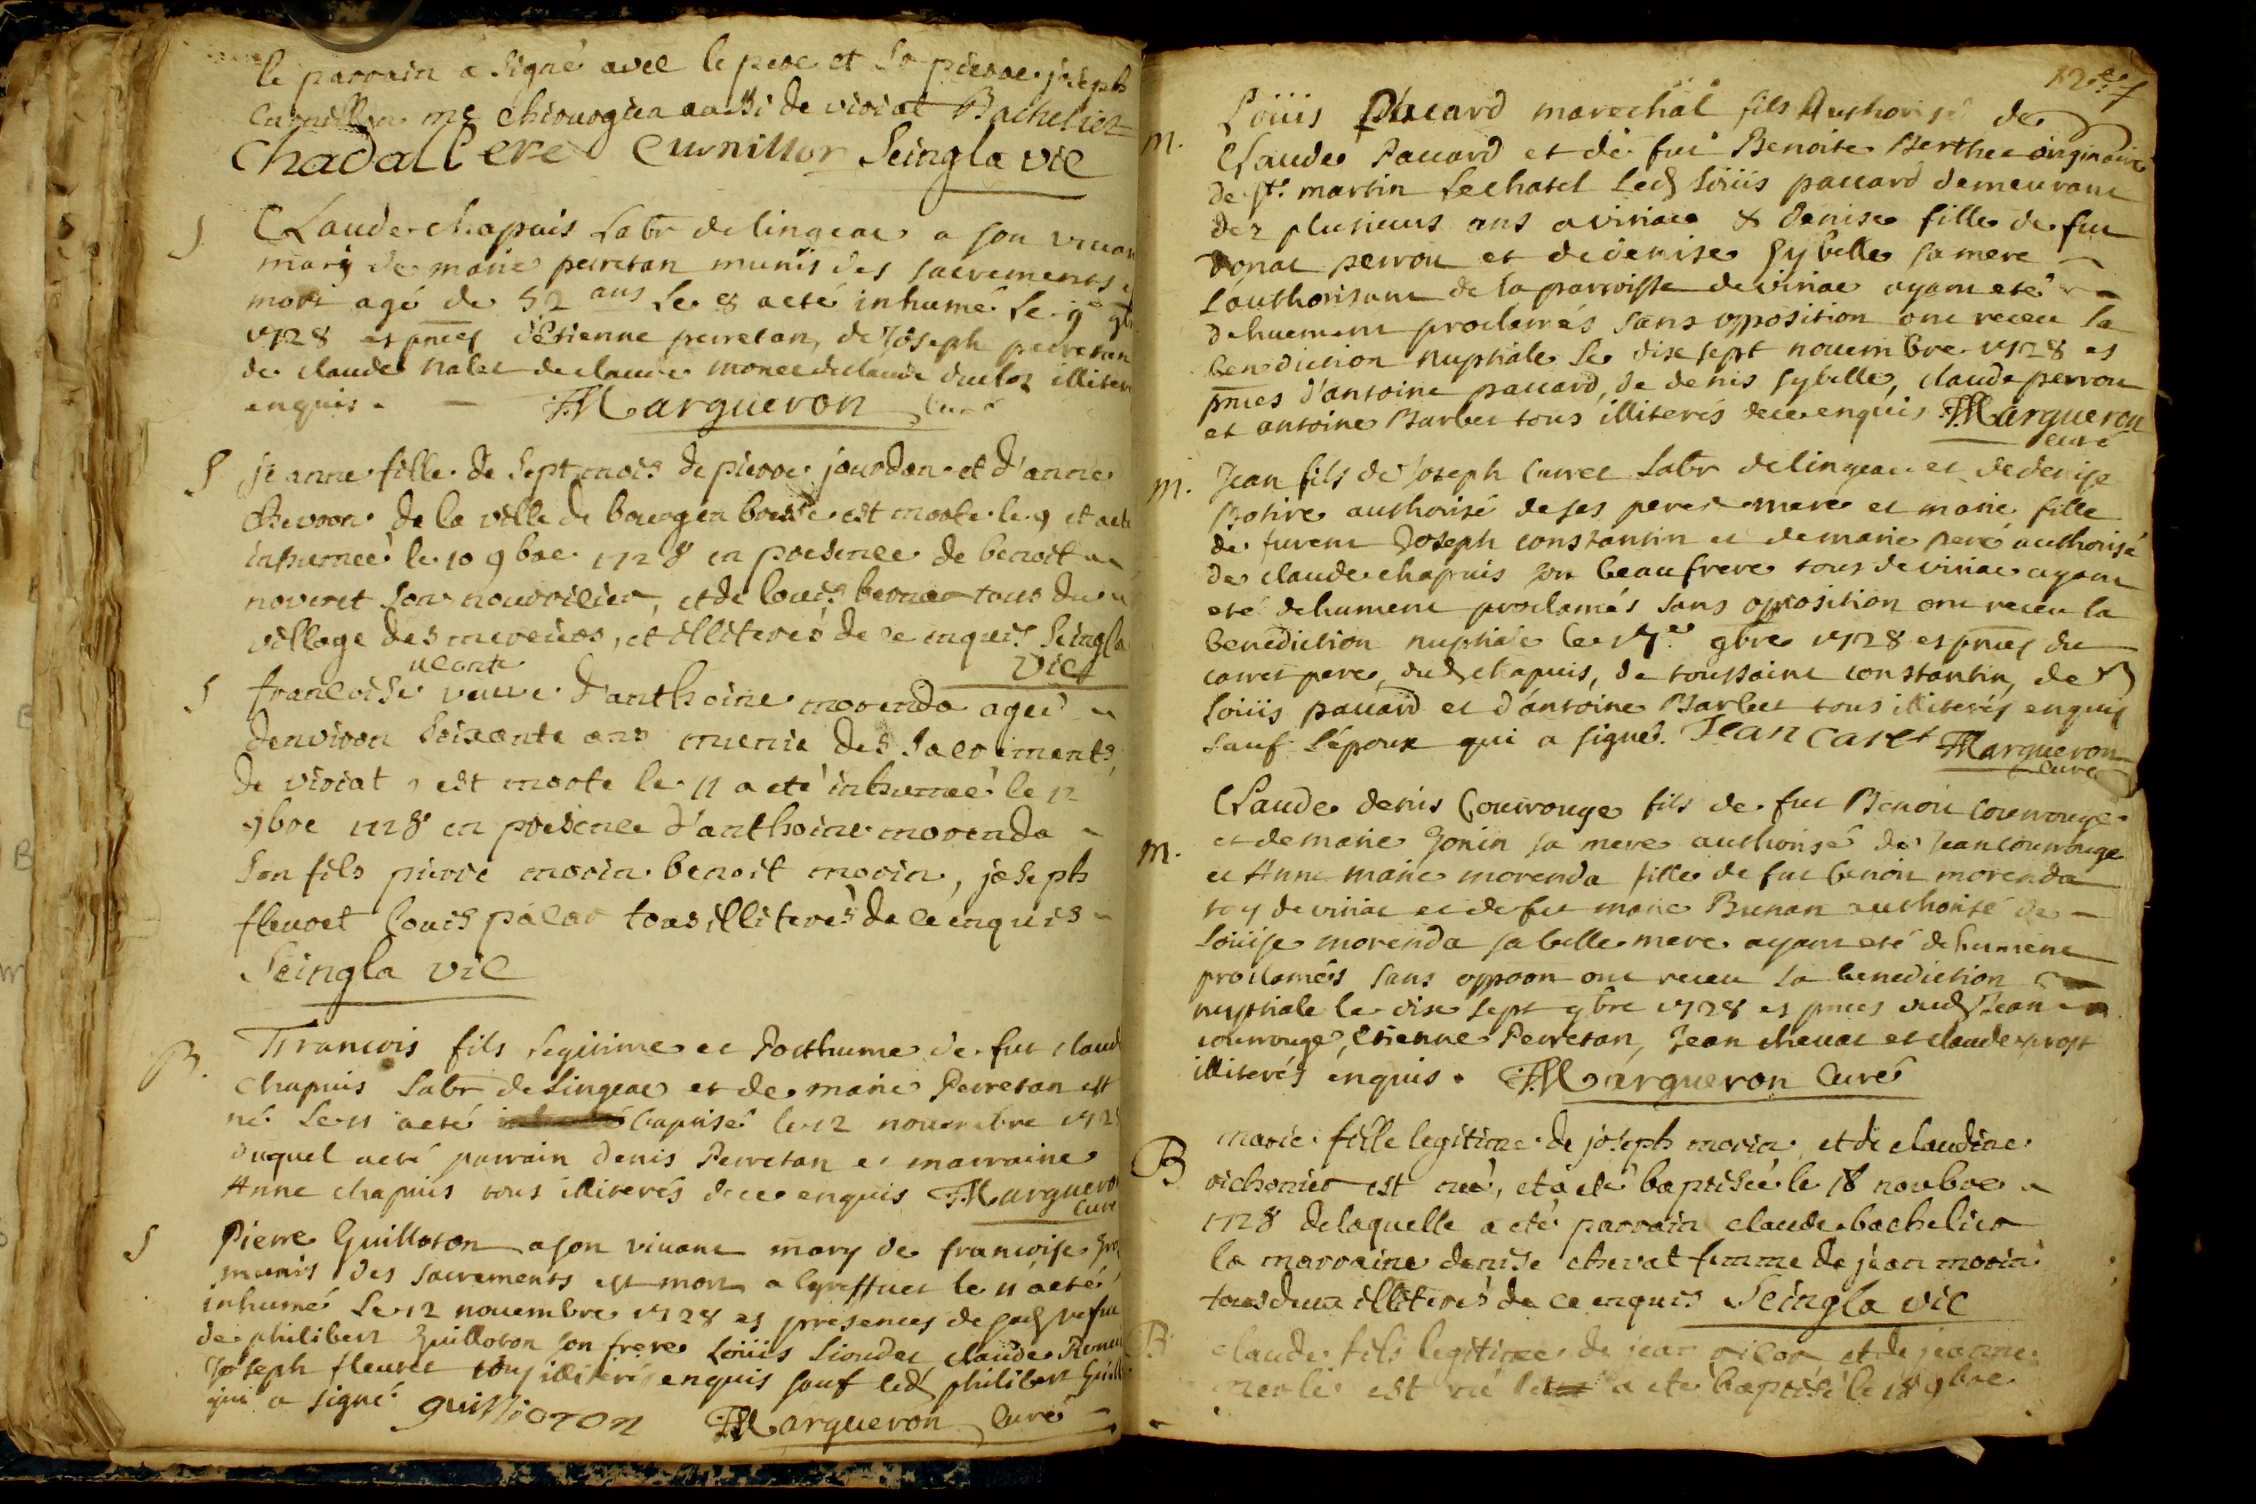 le parrain a signé avec le pere et sr pierre joseph
Curnillon me chirurgien aussi de viriat Bachelier
Chadal Pere Curnillon Seingla vic
S Claude chapuis labr de lingeac a son vivan
mary de marie perretan munis des sacrements e
mort agé de 52 ans le 8 a eté inhumé le 9e 9b
1728 es pnces d'Etienne perretan, de Joseph perretan
de claude nalet de claude monet de claude duclos illiter
enquis. Margueron Curé
S jeanne fille de sept mois de pierre jourdan et d'anne
chevron de la ville de bourg en bresse est morte le 9 et a eté
inhumeé le 10 9bre 1728 en presence de benoit
noveret son nourricier, et de louis bernar tous du
village des mereurs, et illiterés de ce enquis Seingla
vic
S francoise ueante veuve d'anthoine morenda ageé
denviron soixante ans munie des sacrements,
de viriat, est morte le 11 a eté inhumeé le 12
9bre 1728 en presence d'anthoine morenda
son fils pierre morin benoit morin, joseph
fleuret louis pacar tous illiterés de ce enquis
Seingla vic
B. Francois fils legitime et Posthume de fut claud
chapuis labr de Lingeac et de marie Perretan est
né le 11 a eté baptisé le 12 novembre 172
duquel a eté parrain Denis Perretan et marraine
Anne chapuis tous illiterés de ce enquis Marguero
Curé
S Pierre Guilloton a son vivant mary de francoise
munis des sacrements est mort a Cyreffuet le 11 a eté
inhumé le 12 novembre 1728 es presences de
de philibert Guilloton son frere Loüis Lioudet, claude
Joseph fleuret tous illiterés enquis sauf led philibert Guill
qui a signé guilloton Margueron Curé
12e 7
m. Loüis Pacard marechal fils Authorisé de
Claude Pacard et de fut Benoite Berthet originaire
de st martin lechatel led loüis pacard demeurant
dez plusieurs ans a viriac & denise fille de fut
donat perrou et de denise sybille sa mere
l'authorisant de la parroisse de viriac ayant eté
dehuement proclamés sans opposition ont receu la
benediction nuptiale le dix sept novembre 1728 es
pnces d'antoine pacard, de denis sybille, claude perrou
et antoine Barbet tous illiterés de ce enquis Margueron
curé
m. Jean fils de Joseph Carret labr de lingeac et de denise
Botire authorisé de ses pere & mere et marie fille
de furent Joseph constantin et de marie peré authorisé
de claude chapuis son beaufrere tous de viriac ayant
eté dehument proclamés sans opposition ont receu la
benediction nuptiale le 17e 9bre 1728 es pnces du
carret pere, dud chapuis, de toussaint constantin, de
loüis pacard et d'antoine Barbet tous illiterés enquis
sauf l'époux qui a signé. Jean Caret Margueron
Curé
m. Claude denis Courrouge fils de fut Benoit courrouge
et de marie Jonin sa mere authorisé de Jean courrouge
et Anne marie morenda fille de fut benoit morenda
toy de viriac et de fut marie Bunan authorisé de
Loüise morenda sa belle mere ayant eté dehument
proclamés sans oppoon ont receu la benediction
nuptiale le dix sept 9bre 1728 es pnces dud Jean
courrouge, Etienne Perretan, Jean chevat et claude prost
illiterés enquis. Margueron Curé
B marie fille legitime de joseph morin et de claudine
richonier est neé, et a eté baptiseé le 18 novbre
1728 de laquelle a eté parrain claude bachelier
la marraine denise chevat femme de jean morin
tous deux illiterés de ce enquis Seingla vic
B claude fils legitime de jean et de jeanne
merle est né a eté baptisé le 18 9bre